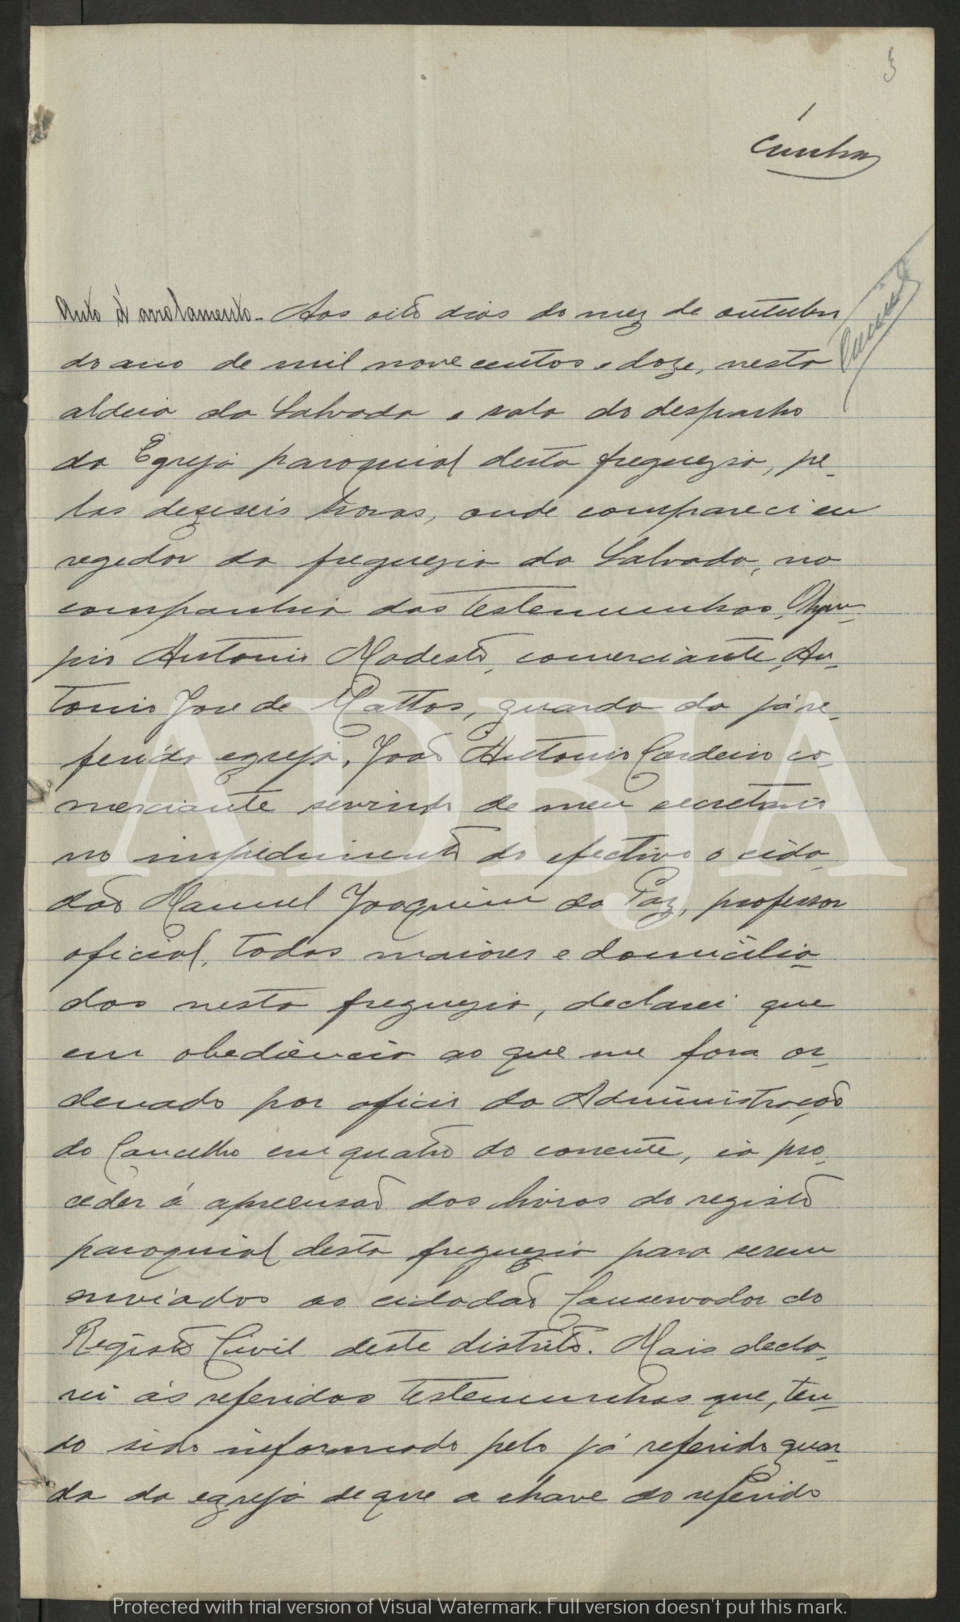 3
Cunha
Cunha
Auto d'arrolamento - Aos oito dias do mez de outubro
do ano de mil nove centos e doze, nesta
aldeia da Salvada e sala do despacho
da Egreja paroquial desta freguezia, pe-
las dezeseis horas, onde compareci eu
regedor da freguezia da Salvada, na
companhia das testemunhas, Olym-
pio Antonio Modesto, comerciante, An-
tonio Jose de Mattos, guarda da já re-
ferida egreja, João Antonio Cordeiro co-
merciante servindo de meu secretario
no impedimento do efectivo o cida-
dão Manuel Joaquim da Paz, professor
oficial, todos maiores e domicilia-
dos nesta freguezia, declarei que
em obediencia ao que me fora or-
denado por oficio da Administração
do Concelho em quatro do corrente, ia pro-
ceder á apreensão dos livros do registo
paroquial desta freguezia para serem
enviados ao cidadão Conservador do
Registo Civil deste distrito. Mais decla-
rei ás referidas testemunhas que, ten-
do sido informado pelo já referido guar-
da da egreja de que a chave do referido
ADBJA
Protected with trial version of Visual Watermark. Full version doesn't put this mark.